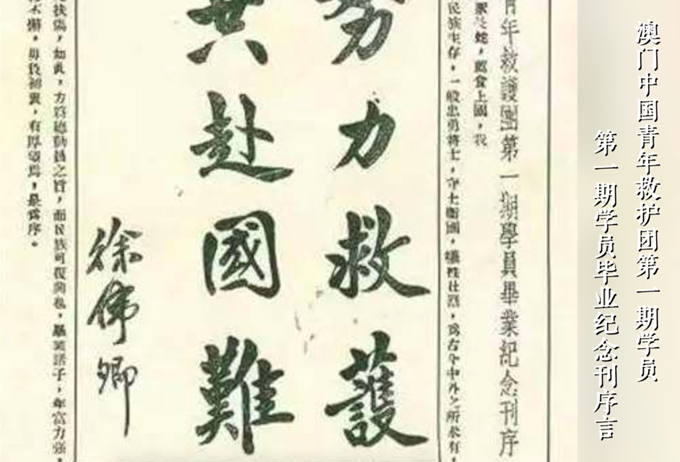 澳门中国青年救护团第一期学员
第一期学员毕业纪念刊序言
青年救護團第一期學員畢業紀念刊序
蛇，荐食上國，我
民族生存，一般忠勇將士，守土衞國，犧牲壯烈，爲古今中外之所未有，
努力救護
共赴國難
徐偉卿
扶傷，如此，方爲總動員之旨，而民族可復興也，畢業諸子，年富力强，
不懈，毋負初衷，有厚望焉，是爲序。